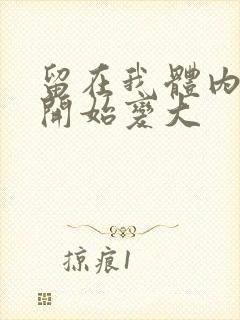 留在我體內
開始變大
掠痕1